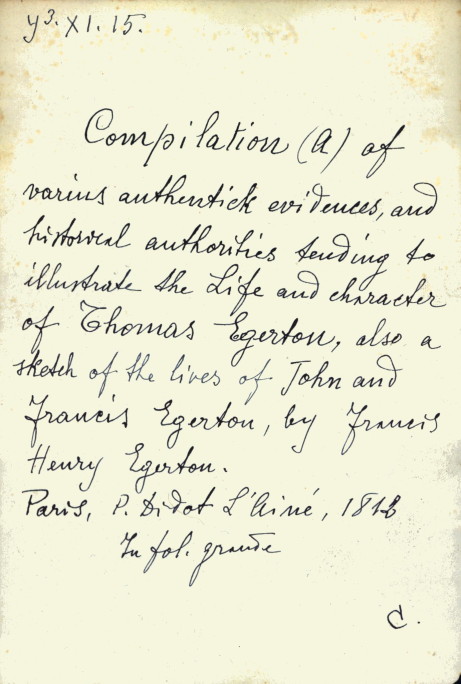 y³. XI. 15.
Compilation (A) of
varius authentick evidences, and
historical authorities tending to
illustrate the Life and character
of Thomas Egerton, also a
sketch of the lives of John and
Francis Egerton, by Francis
Henry Egerton.
Paris, P. Didot L'Ainé,
In fol. grande
C.